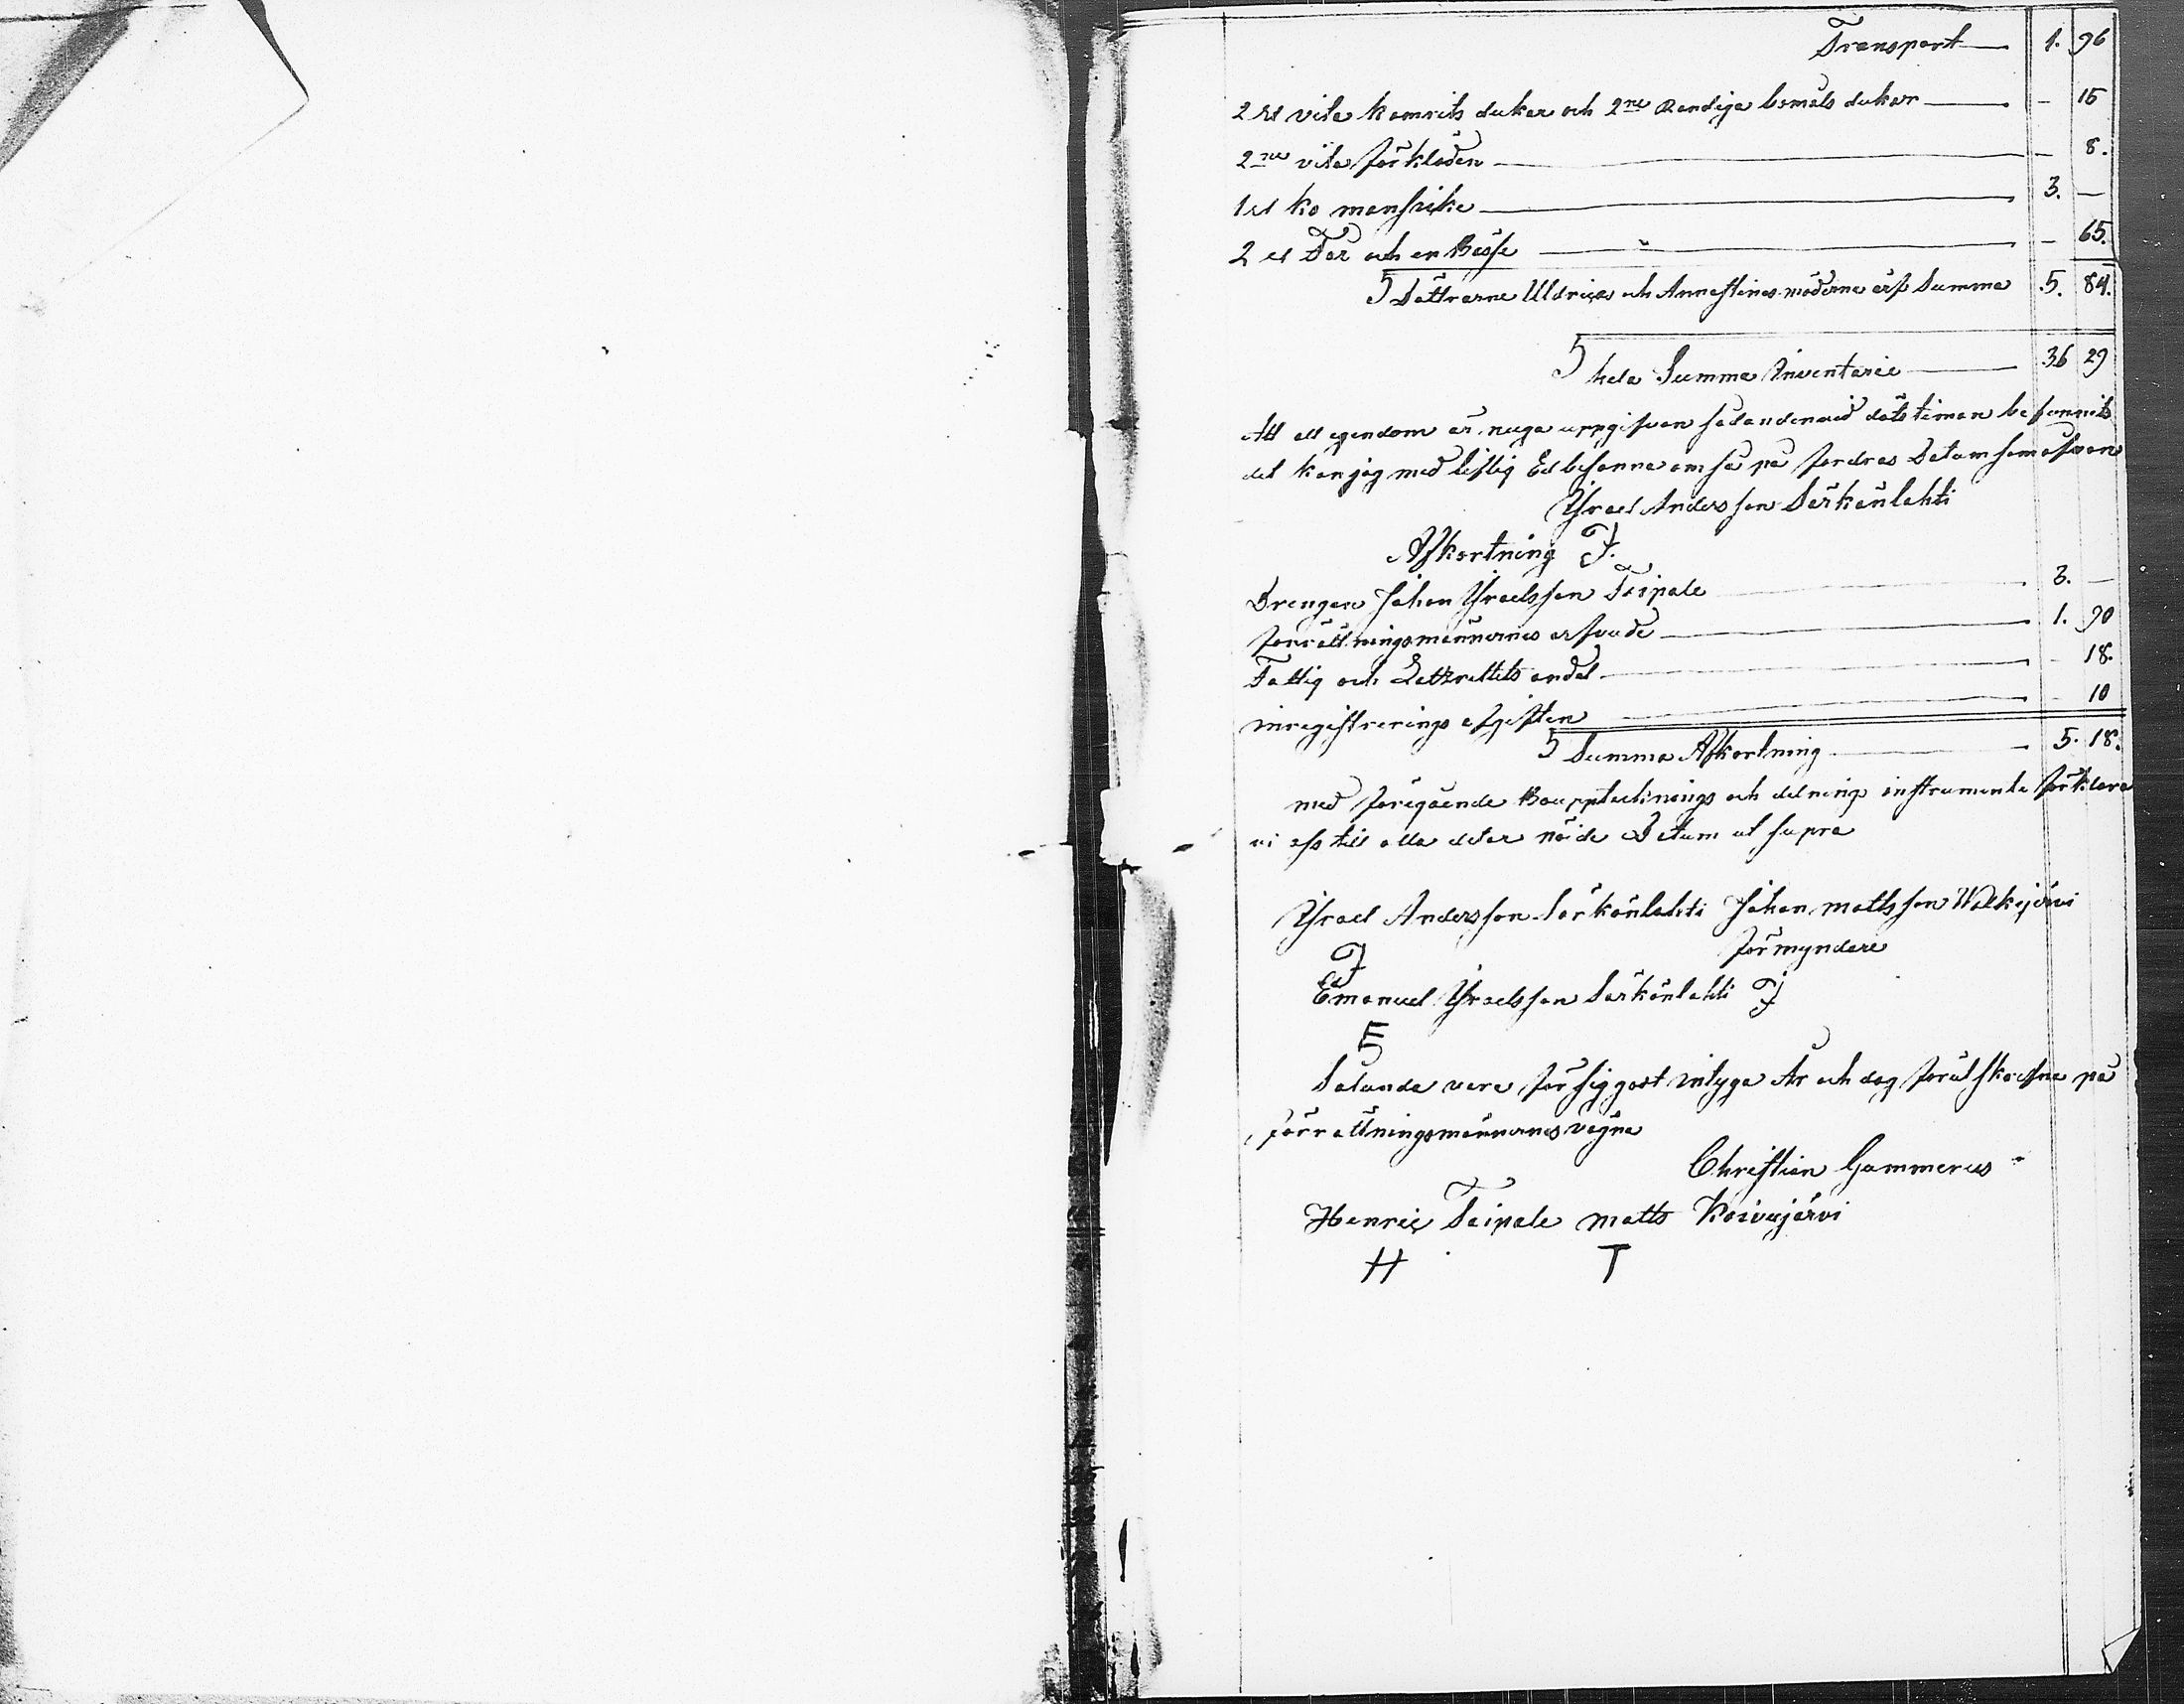 Transport 1. 96
2 st vita kamrits dukar och 2ne Randiga bomuls dukar - 15
2ne vita förkläden - 8.
1 st ko mansike 3. -
2 st Får och en Bässe - 65.
Döttrarne Uldrica och Annastinas möderne arf Summa 5. 84.
hela Summa Inventarie 36 29
Att all egendom är noga uppgifven sådan den vid döds timan befunnits
det kan jag med liflig Ed besanna om så på fordras Datum som ofvan
Ysrael Andersson Särkänlahti
Afkortning I.
Drengen Johan Ysraelsson Taipale 3. -
förrättningsmännernes arfvode 1. 90
Fattig och Lazarettets andel - 18.
inregistrerings afgiften - 10
Summa Afkortning 5. 18.
med föregående Boupptecknings och delnings instrumente förklara
vi oss till alla delar nöide Datum ut supra
Ysrael Andersson Särkänlahti Johan mattsson Walkijärvi
I förmyndare
Emanuel Ysraelsson Särkänlahti I
E
Sålunda vara för sig gåt intyga År och dag förutskrefne på
förrättningsmännernes vägna
Christian Gummerus
Henric Taipale matts Koivujärvi
H T